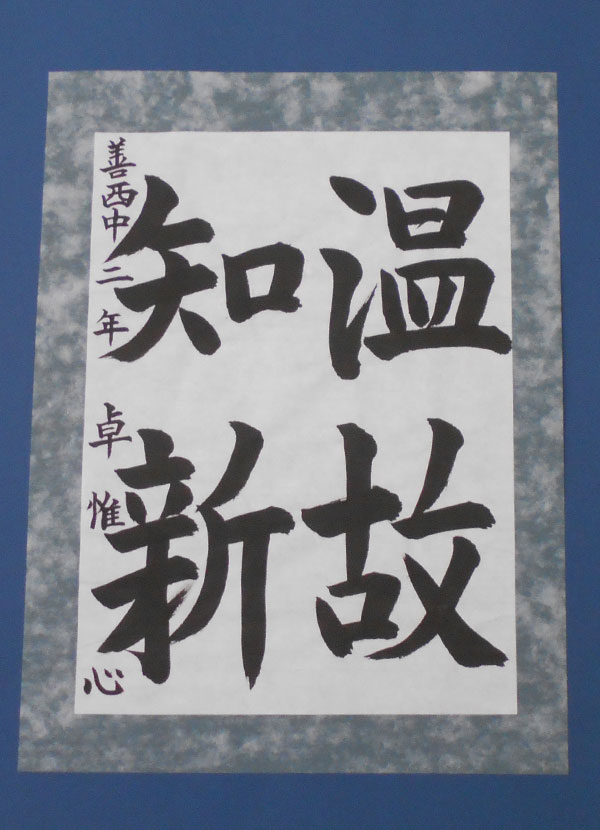 温故
知新
善西中二年 卓惟心